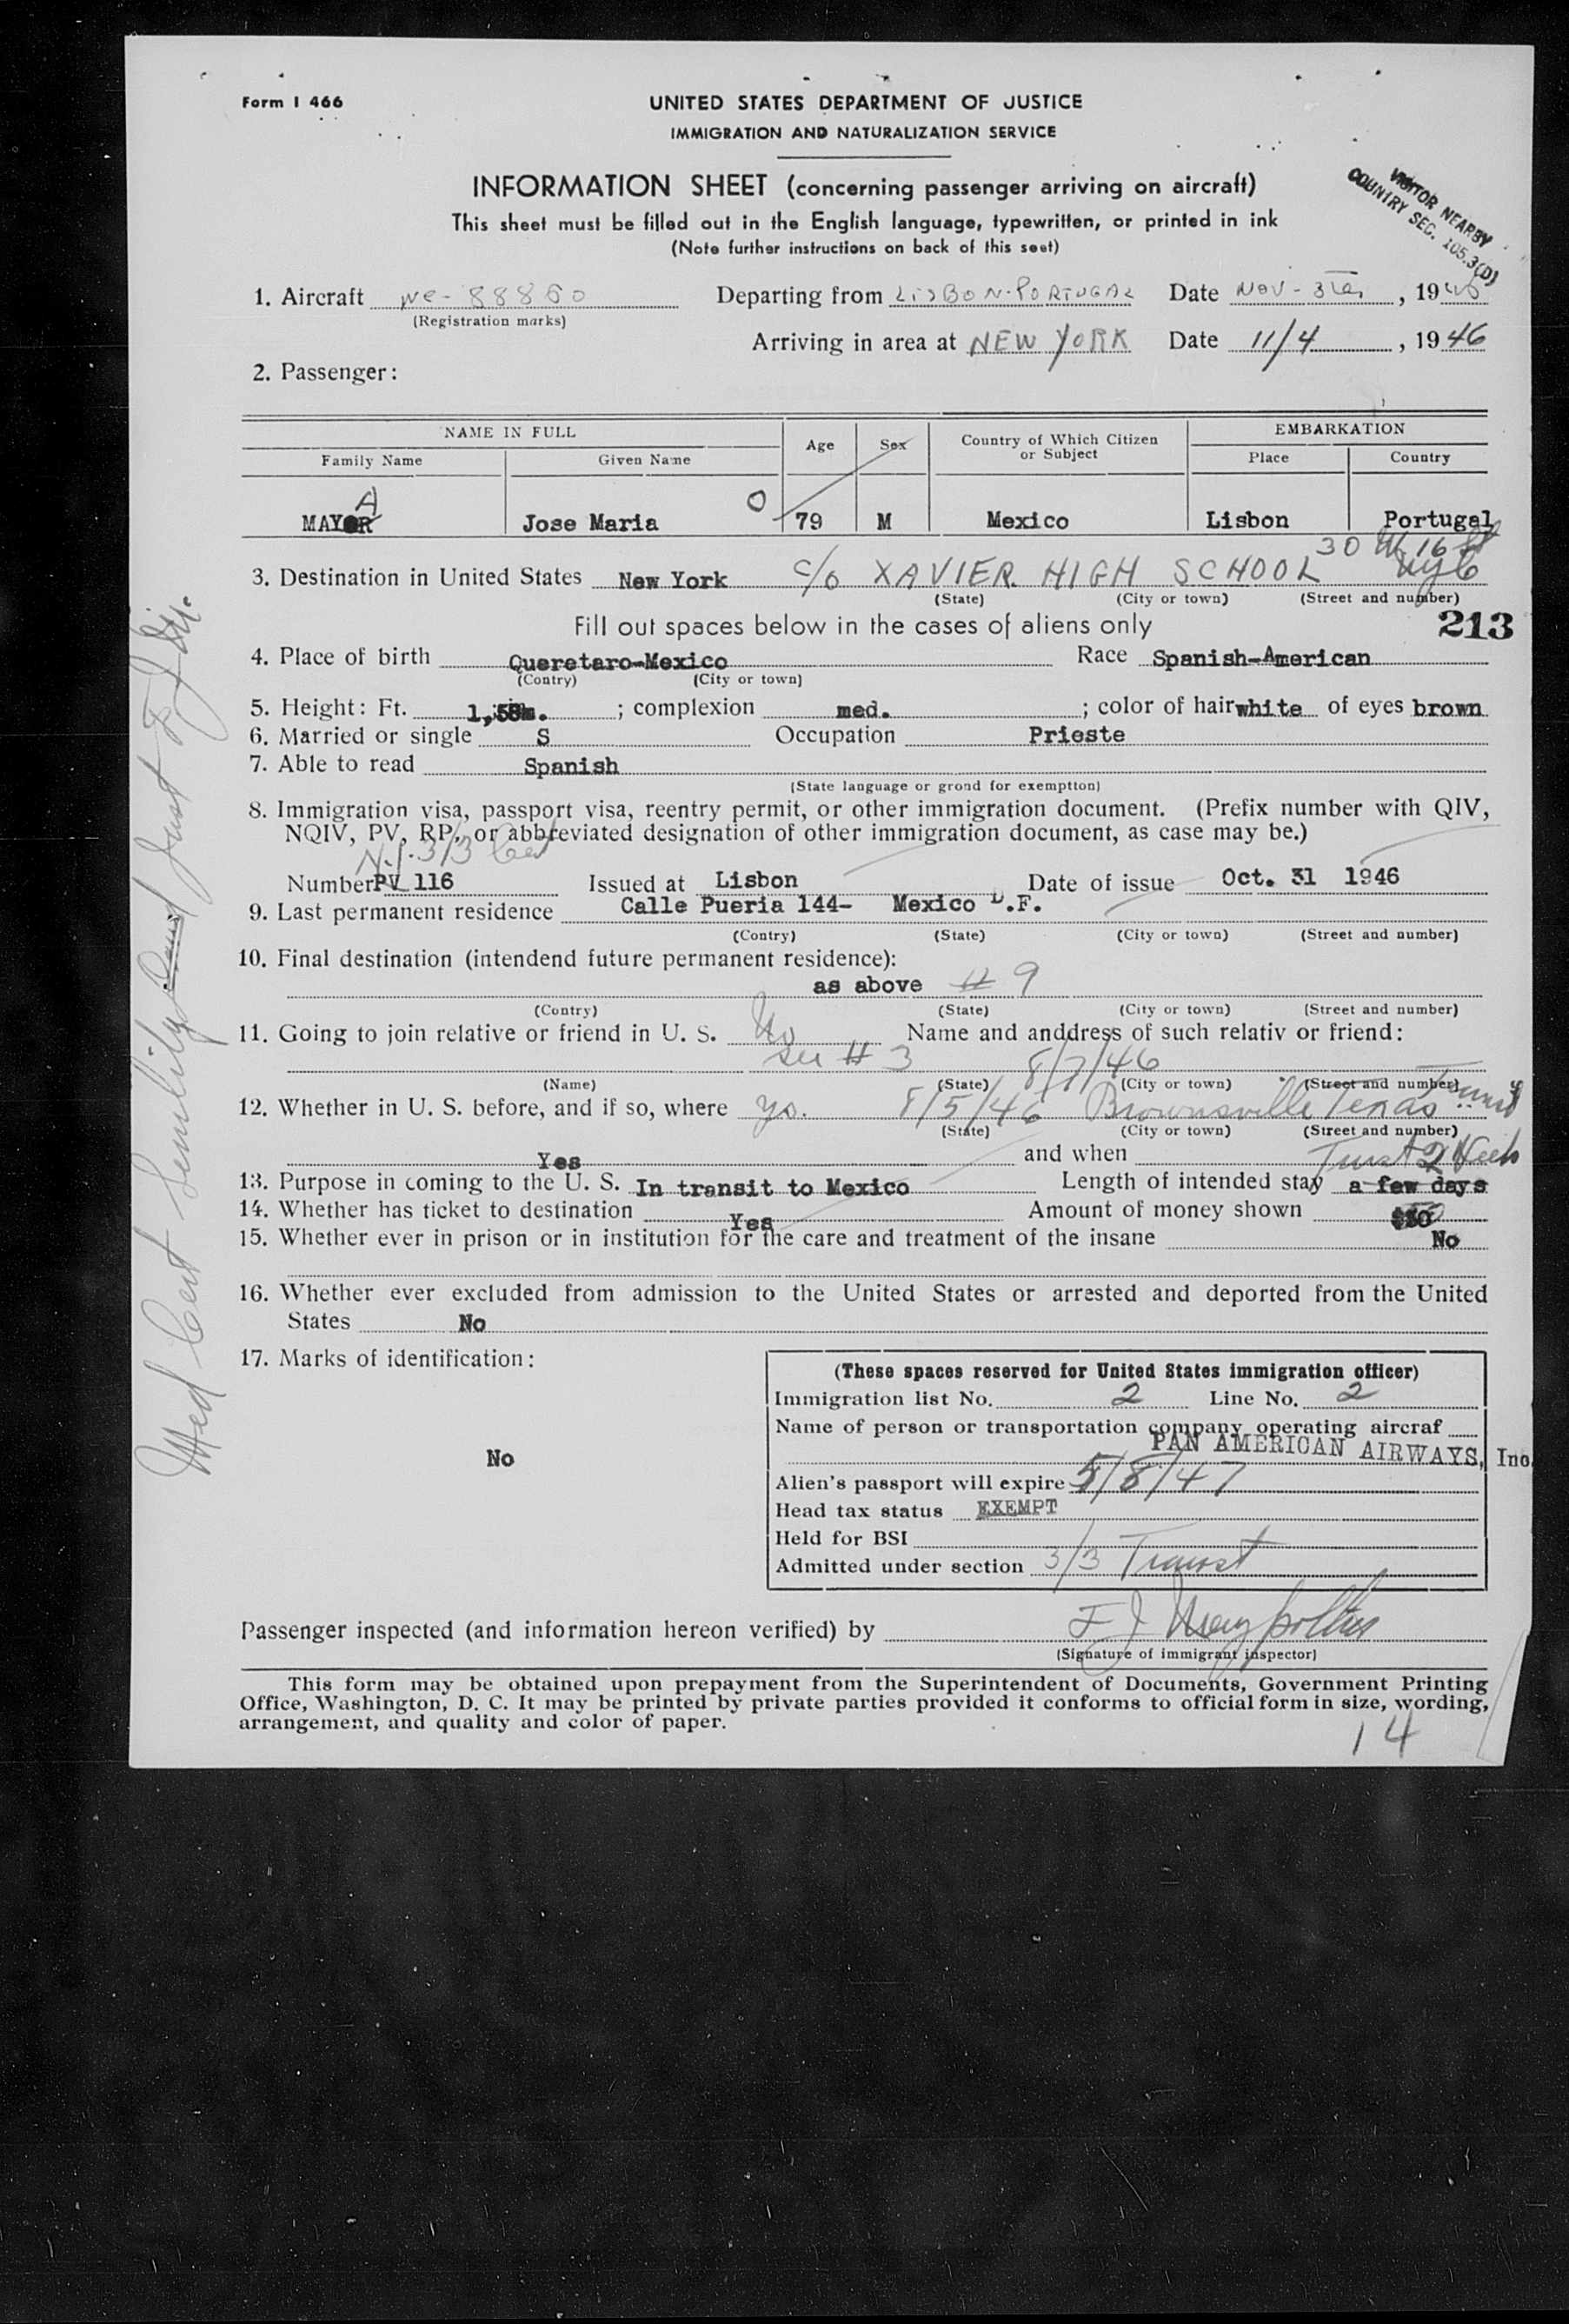 Form I 466
UNITED STATES DEPARTMENT OF JUSTICE
IMMIGRATION AND NATURALIZATION SERVICE
INFORMATION SHEET (concerning passenger arriving on aircraft)
This sheet must be filled out in the English language, typewritten, or printed in ink
(Note further instructions on back of this seet)
VISITOR NEARBY
COUNTRY SEC. 105.3(D)
1. Aircraft NC-88860 Departing from LISBON-PORTUGAL Date NOV-3, 1946
(Registration marks)
Arriving in area at NEW YORK Date 11/4, 1946
2. Passenger:
NAME IN FULL Age Sex Country of Which Citizen or Subject EMBARKATION
Family Name Given Name Place Country
A
MAYOR Jose Maria O 79 M Mexico Lisbon Portugal
30 W 16 St
3. Destination in United States New York c/o XAVIER HIGH SCHOOL NYC
(State) (City or town) (Street and number)
Fill out spaces below in the cases of aliens only 213
4. Place of birth Queretaro-Mexico Race Spanish-American
(Contry) (City or town)
5. Height: Ft. 1,58m. ; complexion med. ; color of hair white of eyes brown
6. Married or single S Occupation Prieste
7. Able to read Spanish
(State language or grond for exemption)
8. Immigration visa, passport visa, reentry permit, or other immigration document. (Prefix number with QIV,
NQIV, PV, RP, or abbreviated designation of other immigration document, as case may be.)
3/3
Number PV 116 Issued at Lisbon Date of issue Oct. 31 1946
9. Last permanent residence Calle Pueria 144- Mexico D.F.
(Contry) (State) (City or town) (Street and number)
10. Final destination (intendend future permanent residence):
as above # 9
(Contry) (State) (City or town) (Street and number)
11. Going to join relative or friend in U. S. No Name and anddress of such relativ or friend:
See # 3 8/7/46
(Name) (State) (City or town) (Street and number)
12. Whether in U. S. before, and if so, where yes. 8/5/46 Brownsville Texas
(State) (City or town) (Street and number)
Yes and when Transit 2 Weeks
13. Purpose in coming to the U. S. In transit to Mexico Length of intended stay a few days
14. Whether has ticket to destination Yes Amount of money shown $50
15. Whether ever in prison or in institution for the care and treatment of the insane No
16. Whether ever excluded from admission to the United States or arrested and deported from the United
States No
17. Marks of identification:
No
(These spaces reserved for United States immigration officer)
Immigration list No. 2 Line No. 2
Name of person or transportation company operating aircraf
PAN AMERICAN AIRWAYS, Inc
Alien's passport will expire 5/8/47
Head tax status EXEMPT
Held for BSI
Admitted under section 3/3 Transit
Passenger inspected (and information hereon verified) by
(Signature of immigrant inspector)
This form may be obtained upon prepayment from the Superintendent of Documents, Government Printing
Office, Washington, D. C. It may be printed by private parties provided it conforms to official form in size, wording,
arrangement, and quality and color of paper.
14
Med Cert Senility